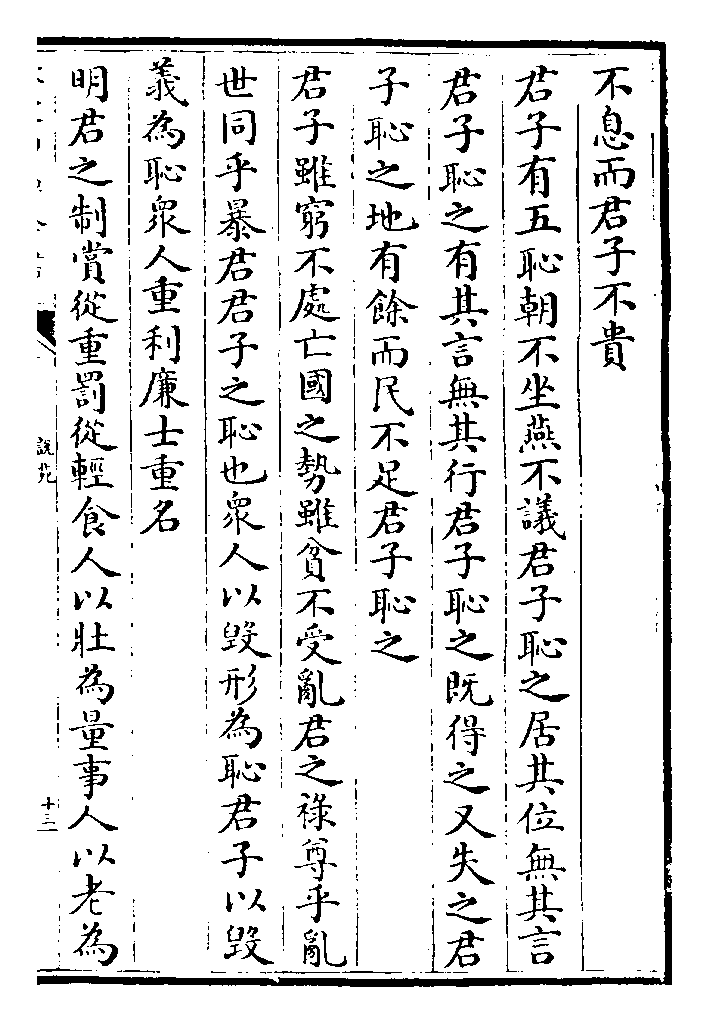 不息而君子不貴
君子有五恥朝不坐燕不議君子恥之居其位無其言
君子恥之有其言無其行君子恥之既得之又失之君
子恥之地有餘而民不足君子恥之
君子雖窮不處亡國之勢雖貧不受亂君之祿尊乎亂
世同乎暴君君子之恥也衆人以毀形為恥君子以毀
義為恥衆人重利廉士重名
明君之制賞從重罰從輕食人以壯為量事人以老為
說苑
十三